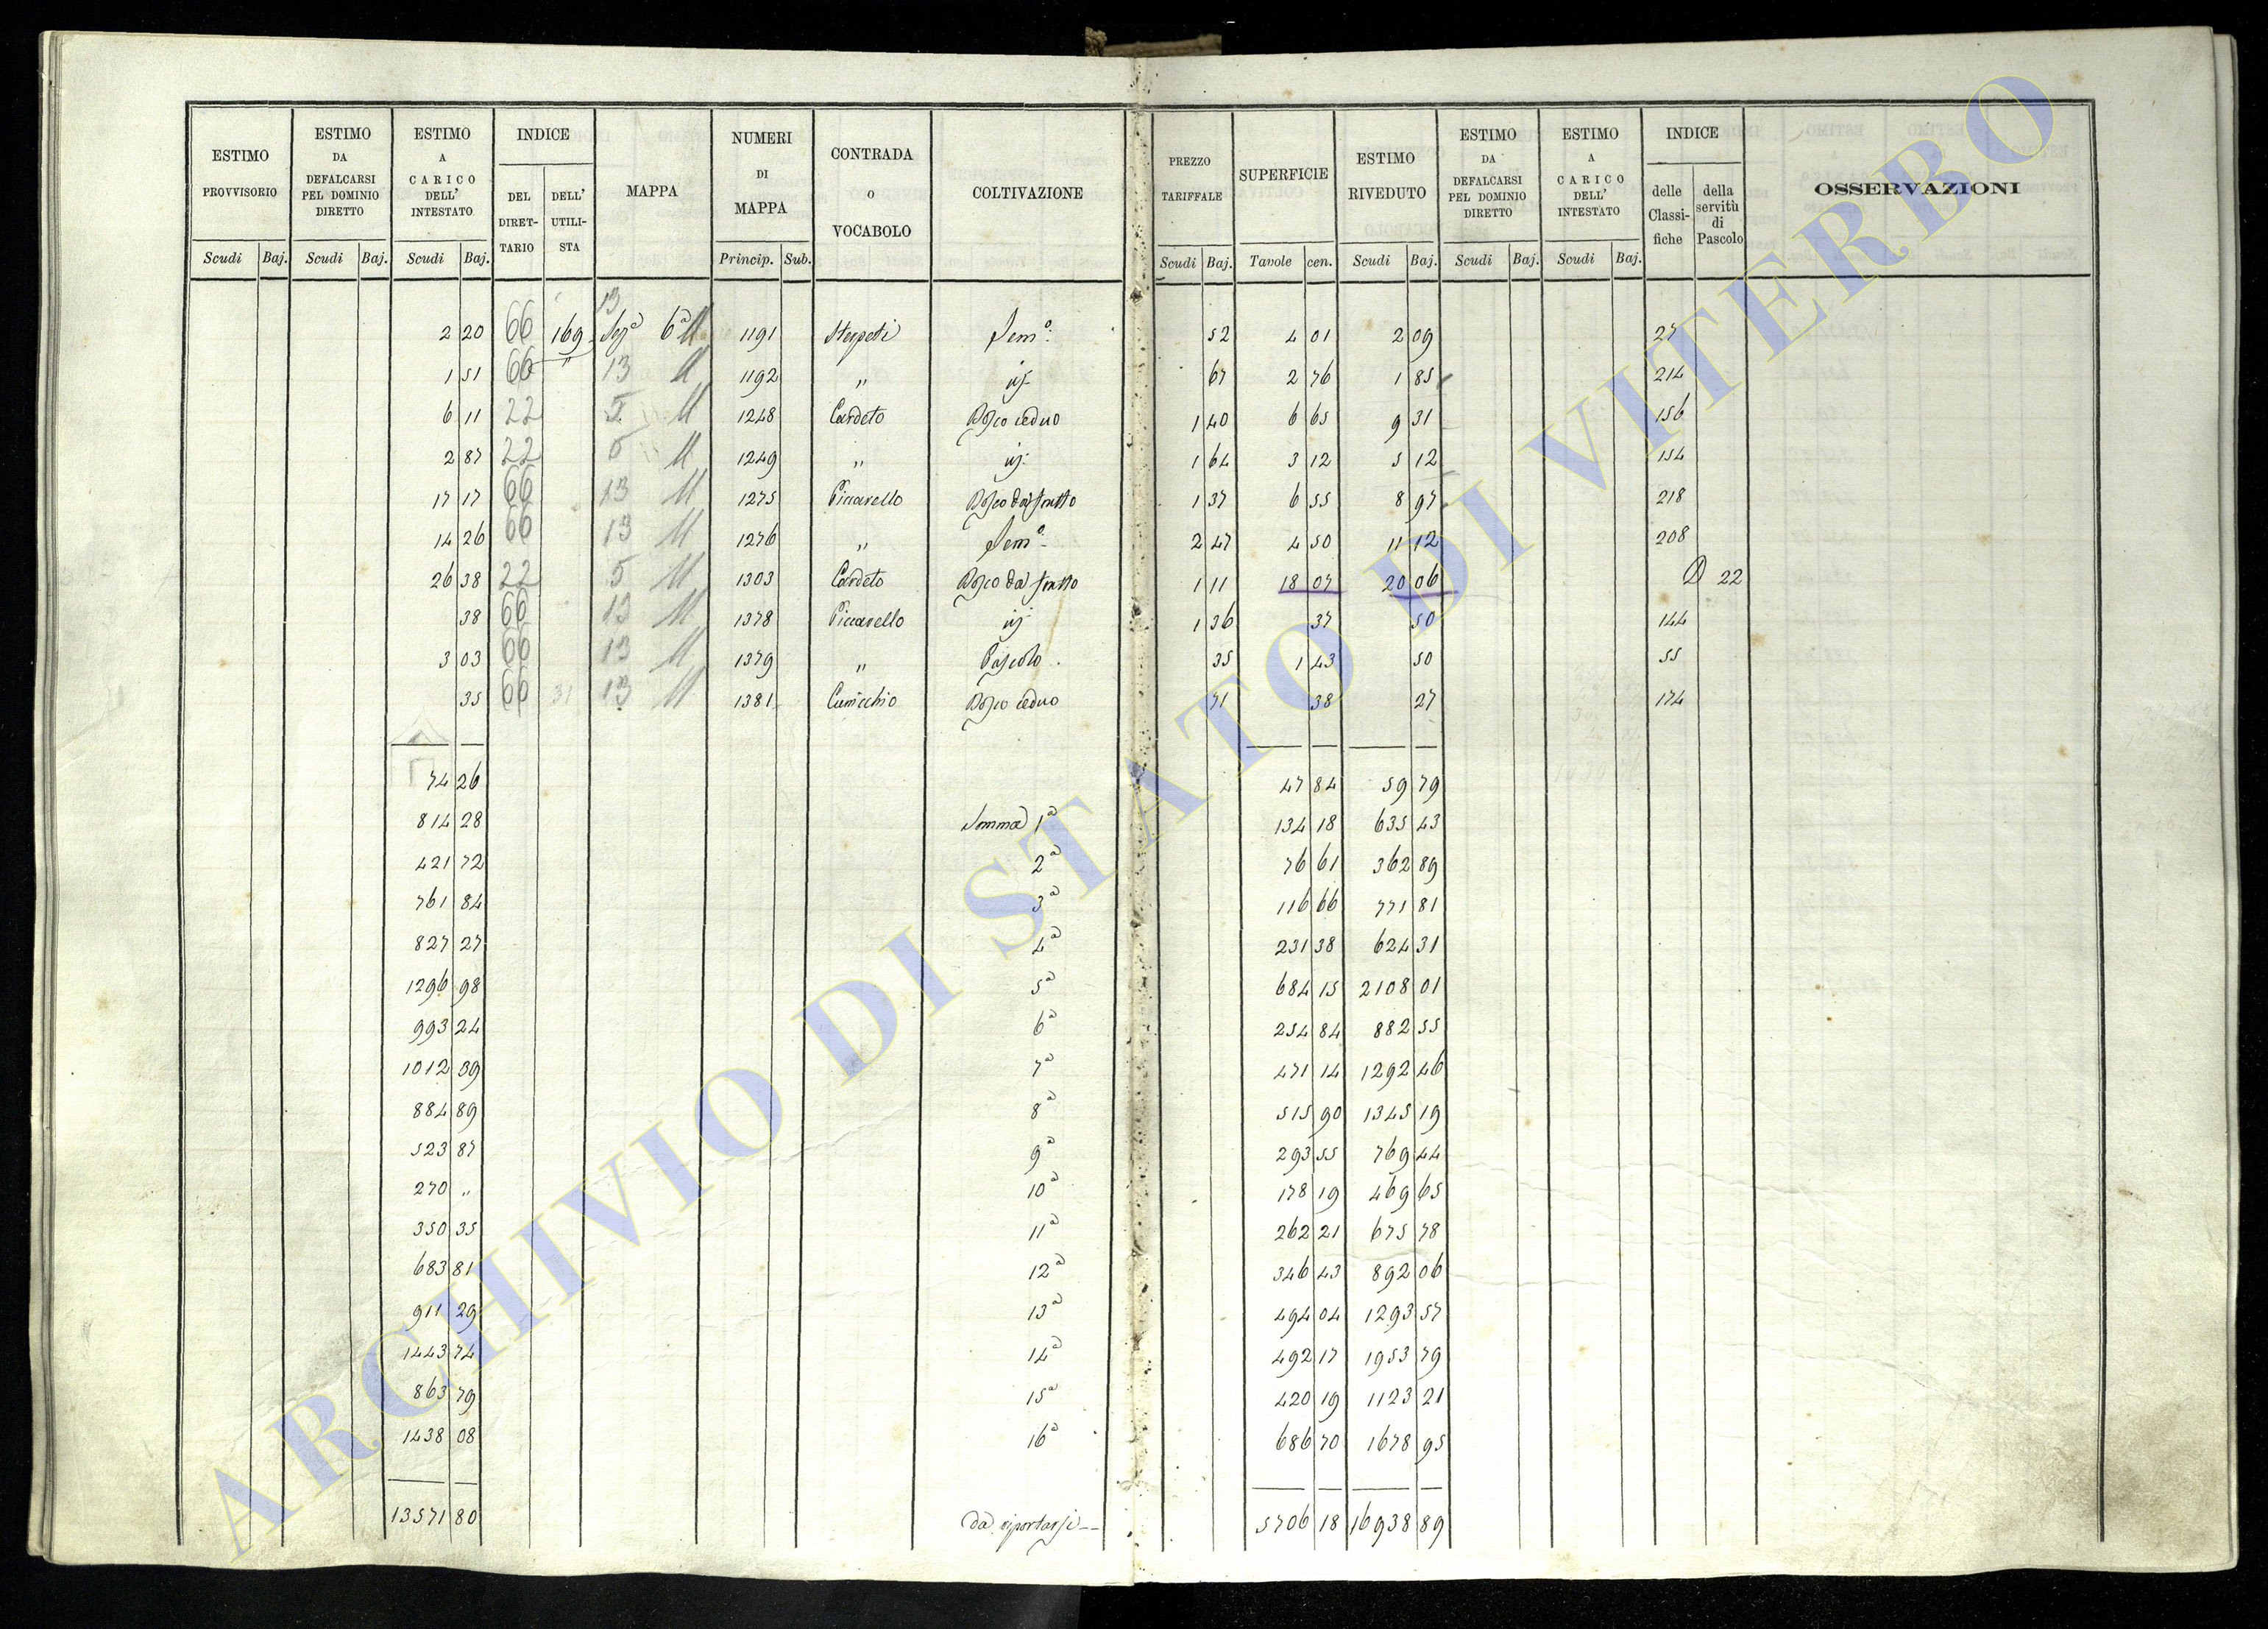 ESTIMO PROVVISORIO | ESTIMO DA DEFALCARSI PEL DOMINIO DIRETTO | ESTIMO A CARICO DELL' INTESTATO | INDICE DEL DIRETTARIO | DELL' UTILISTA | MAPPA | NUMERI DI MAPPA | CONTRADA o VOCABOLO | COLTIVAZIONE | PREZZO TARIFFALE | SUPERFICIE | ESTIMO RIVEDUTO | ESTIMO DA DEFALCARSI PEL DOMINIO DIRETTO | ESTIMO A CARICO DELL' INTESTATO | INDICE delle Classifiche | della servitù di Pascolo | OSSERVAZIONI
Scudi Baj. Scudi Baj. Scudi Baj. Princip. Sub. Scudi Baj. Tavole cen. Scudi Baj. Scudi Baj. Scudi Baj.
13
2 20 66 169 Sez.a 6a M 1191 Sterpeti Sem.o 52 4 01 2 09 27
1 51 66 " 13 M 1192 " id. 67 2 76 1 85 214
6 11 22 5 M 1248 Cardeto Bosco ceduo 1 40 6 65 9 31 156
2 87 22 5 M 1249 " id. 1 64 3 12 5 12 154
17 17 66 13 M 1275 Piccarello Bosco da frutto 1 37 6 55 8 97 218
14 26 66 13 M 1276 " Sem.o 2 47 4 50 11 12 208
26 38 22 5 M 1303 Cardeto Bosco da frutto 1 11 18 07 20 06 22
38 66 13 M 1378 Piccarello id. 1 36 37 50 144
3 03 66 13 M 1379 " Pascolo 35 1 43 50 55
35 66 31 13 M 1381 Cunicchio Bosco ceduo 71 38 27 174
74 26 47 84 59 79
814 28 Somma 1a 134 18 635 43
421 72 2a 76 61 362 89
761 84 3a 116 66 771 81
827 27 4a 231 38 624 31
1296 98 5a 684 15 2108 01
993 24 6a 254 84 882 55
1012 39 7a 471 14 1292 46
884 89 8a 515 90 1345 19
523 87 9a 293 55 769 44
270 " 10a 178 19 469 65
350 35 11a 262 21 675 78
683 81 12a 346 43 892 06
911 29 13a 494 04 1293 57
1443 74 14a 492 17 1953 79
863 79 15a 420 19 1123 21
1438 08 16a 686 70 1678 95
13571 80 da riportarsi -- 5706 18 16938 89
ARCHIVIO DI STATO DI VITERBO